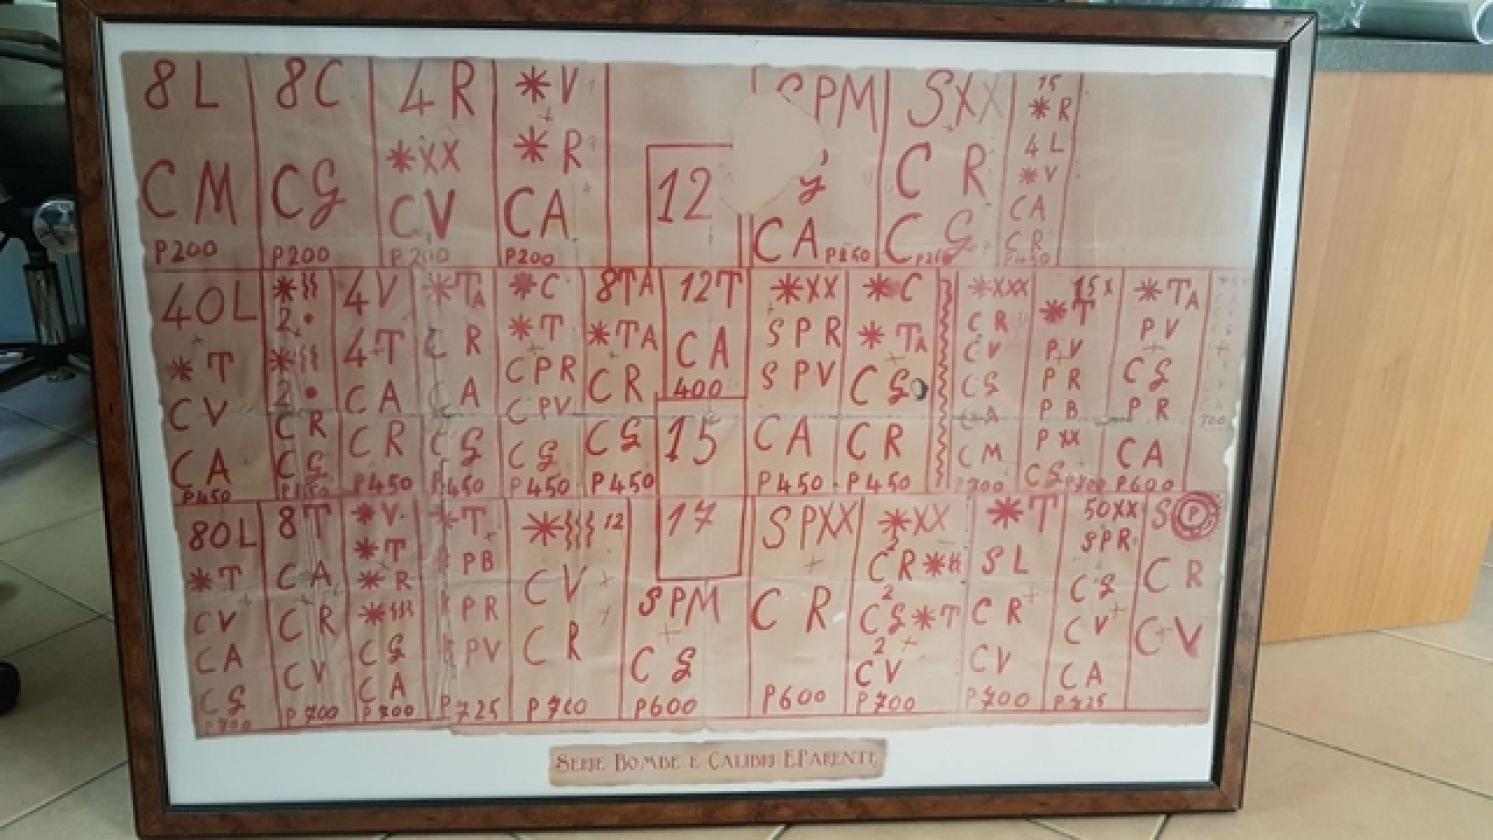 8L
CM
P200
8C
CG
P200
4R
*XX
CV
P200
*V
*R
CA
P200
12
SPM
CA P250
SXX
CR
CG
15
*R
4L
*V
CA
CR
P450
40L
*T
CV
CA
P450
2•
2•
CR
CG
4V
4T
CA
CR
P450
*TA
CR
CA
CG
P450
*C
*T
CPR
CPV
CG
P450
8TA
*TA
CR
CG
P450
12T
CA
400
15
17
*XX
SPR
SPV
CA
P450
*C
*TA
CG
CR
P450
*XXX
CR
CV
CG
CA
CM
P700
15X
*T
PV
PR
PB
PXX
CG
*TA
PV
CG
PR
CA
P600
80L
*T
CV
CA
CG
P700
8T
CA
CR
CV
P700
*V
*T
*R
CG
CA
P700
*T
PB
PR
PV
P725
12
CV
CR
P700
SPM
CG
P600
SPXX
CR
P600
*XX
2
CR
2
CG*T
2
CV
P700
*T
SL
CR
CV
P700
50XX
SPR
CG
CV
CA
P725
S P
CR
CV
SERIE BOMBE E CALIBRI E.PARENTE